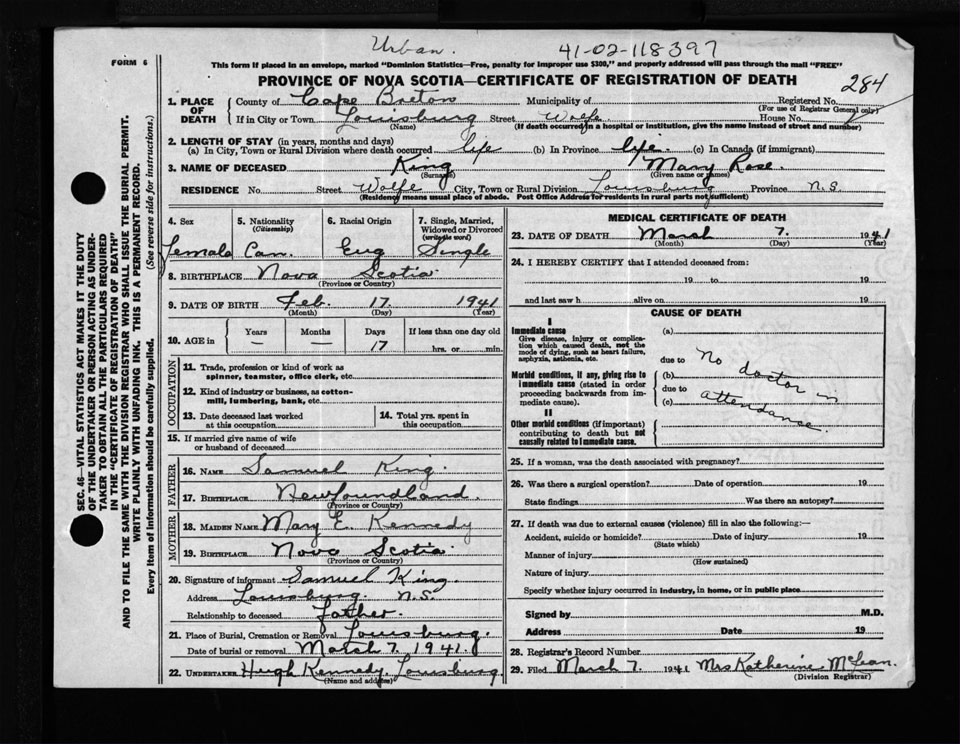 Urban.
41-02-118397
FORM 6
This form if placed in an envelope, marked "Dominion Statistics—Free, penalty for improper use $300," and properly addressed will pass through the mail "FREE"
PROVINCE OF NOVA SCOTIA—CERTIFICATE OF REGISTRATION OF DEATH
284
1. PLACE OF DEATH
County of Cape Breton Municipality of Registered No.
(For use of Registrar General only)
If in City or Town Louisburg Street Wolfe House No.
(Name) (If death occurred in a hospital or institution, give the name instead of street and number)
2. LENGTH OF STAY (in years, months and days)
(a) In City, Town or Rural Division where death occurred life (b) In Province life. (c) In Canada (if immigrant)
3. NAME OF DECEASED King Mary Rose.
(Surname) (Given name or names)
RESIDENCE No. Street Wolfe City, Town or Rural Division Louisburg Province N.S.
(Residency means usual place of abode. Post Office Address for residents in rural parts not sufficient)
4. Sex
female
5. Nationality
(Citizenship)
Can.
6. Racial Origin
Eng
7. Single, Married, Widowed or Divorced
(write the word)
Single
8. BIRTHPLACE Nova Scotia
(Province or Country)
9. DATE OF BIRTH Feb. 17 1941
(Month) (Day) (Year)
10. AGE in
Years Months Days If less than one day old
— — 17 hrs. or min.
OCCUPATION
11. Trade, profession or kind of work as spinner, teamster, office clerk, etc.
12. Kind of industry or business, as cotton-mill, lumbering, bank, etc.
13. Date deceased last worked at this occupation
14. Total yrs. spent in this occupation
15. If married give name of wife or husband of deceased
FATHER
16. NAME Samuel King.
17. BIRTHPLACE Newfoundland.
(Province or Country)
MOTHER
18. MAIDEN NAME Mary E. Kennedy
19. BIRTHPLACE Nova Scotia.
(Province or Country)
20. Signature of informant Samuel King.
Address Louisburg. N.S.
Relationship to deceased father.
21. Place of Burial, Cremation or Removal Louisburg.
Date of burial or removal March 7. 1941.
22. UNDERTAKER Hugh Kennedy. Louisburg
(Name and address)
MEDICAL CERTIFICATE OF DEATH
23. DATE OF DEATH March 7. 1941
(Month) (Day) (Year)
24. I HEREBY CERTIFY that I attended deceased from:
19 to 19
and last saw h alive on 19
CAUSE OF DEATH
I
Immediate cause
Give disease, injury or complication which caused death, not the mode of dying, such as heart failure, asphyxia, asthenia, etc.
(a)
due to
Morbid conditions, if any, giving rise to immediate cause (stated in order proceeding backwards from immediate cause).
(b)
due to
(c)
No doctor in
attendance.
II
Other morbid conditions (if important) contributing to death but not causally related to immediate cause.
25. If a woman, was the death associated with pregnancy?
26. Was there a surgical operation? Date of operation 19
State findings Was there an autopsy?
27. If death was due to external causes (violence) fill in also the following:—
Accident, suicide or homicide? Date of injury 19
(State which)
Manner of injury
(How sustained)
Nature of injury
Specify whether injury occurred in industry, in home, or in public place
Signed by M.D.
Address Date 19
28. Registrar's Record Number
29. Filed March 7. 1941 Mrs Katherine McLean.
(Division Registrar)
SEC. 46—VITAL STATISTICS ACT MAKES IT THE DUTY
OF THE UNDERTAKER OR PERSON ACTING AS UNDER-
TAKER TO OBTAIN ALL THE PARTICULARS REQUIRED
IN THE "CERTIFICATE OF REGISTRATION OF DEATH"
AND TO FILE THE SAME WITH THE DIVISION REGISTRAR WHO SHALL ISSUE THE BURIAL PERMIT.
WRITE PLAINLY WITH UNFADING INK. THIS IS A PERMANENT RECORD.
Every item of information should be carefully supplied. (See reverse side for instructions.)